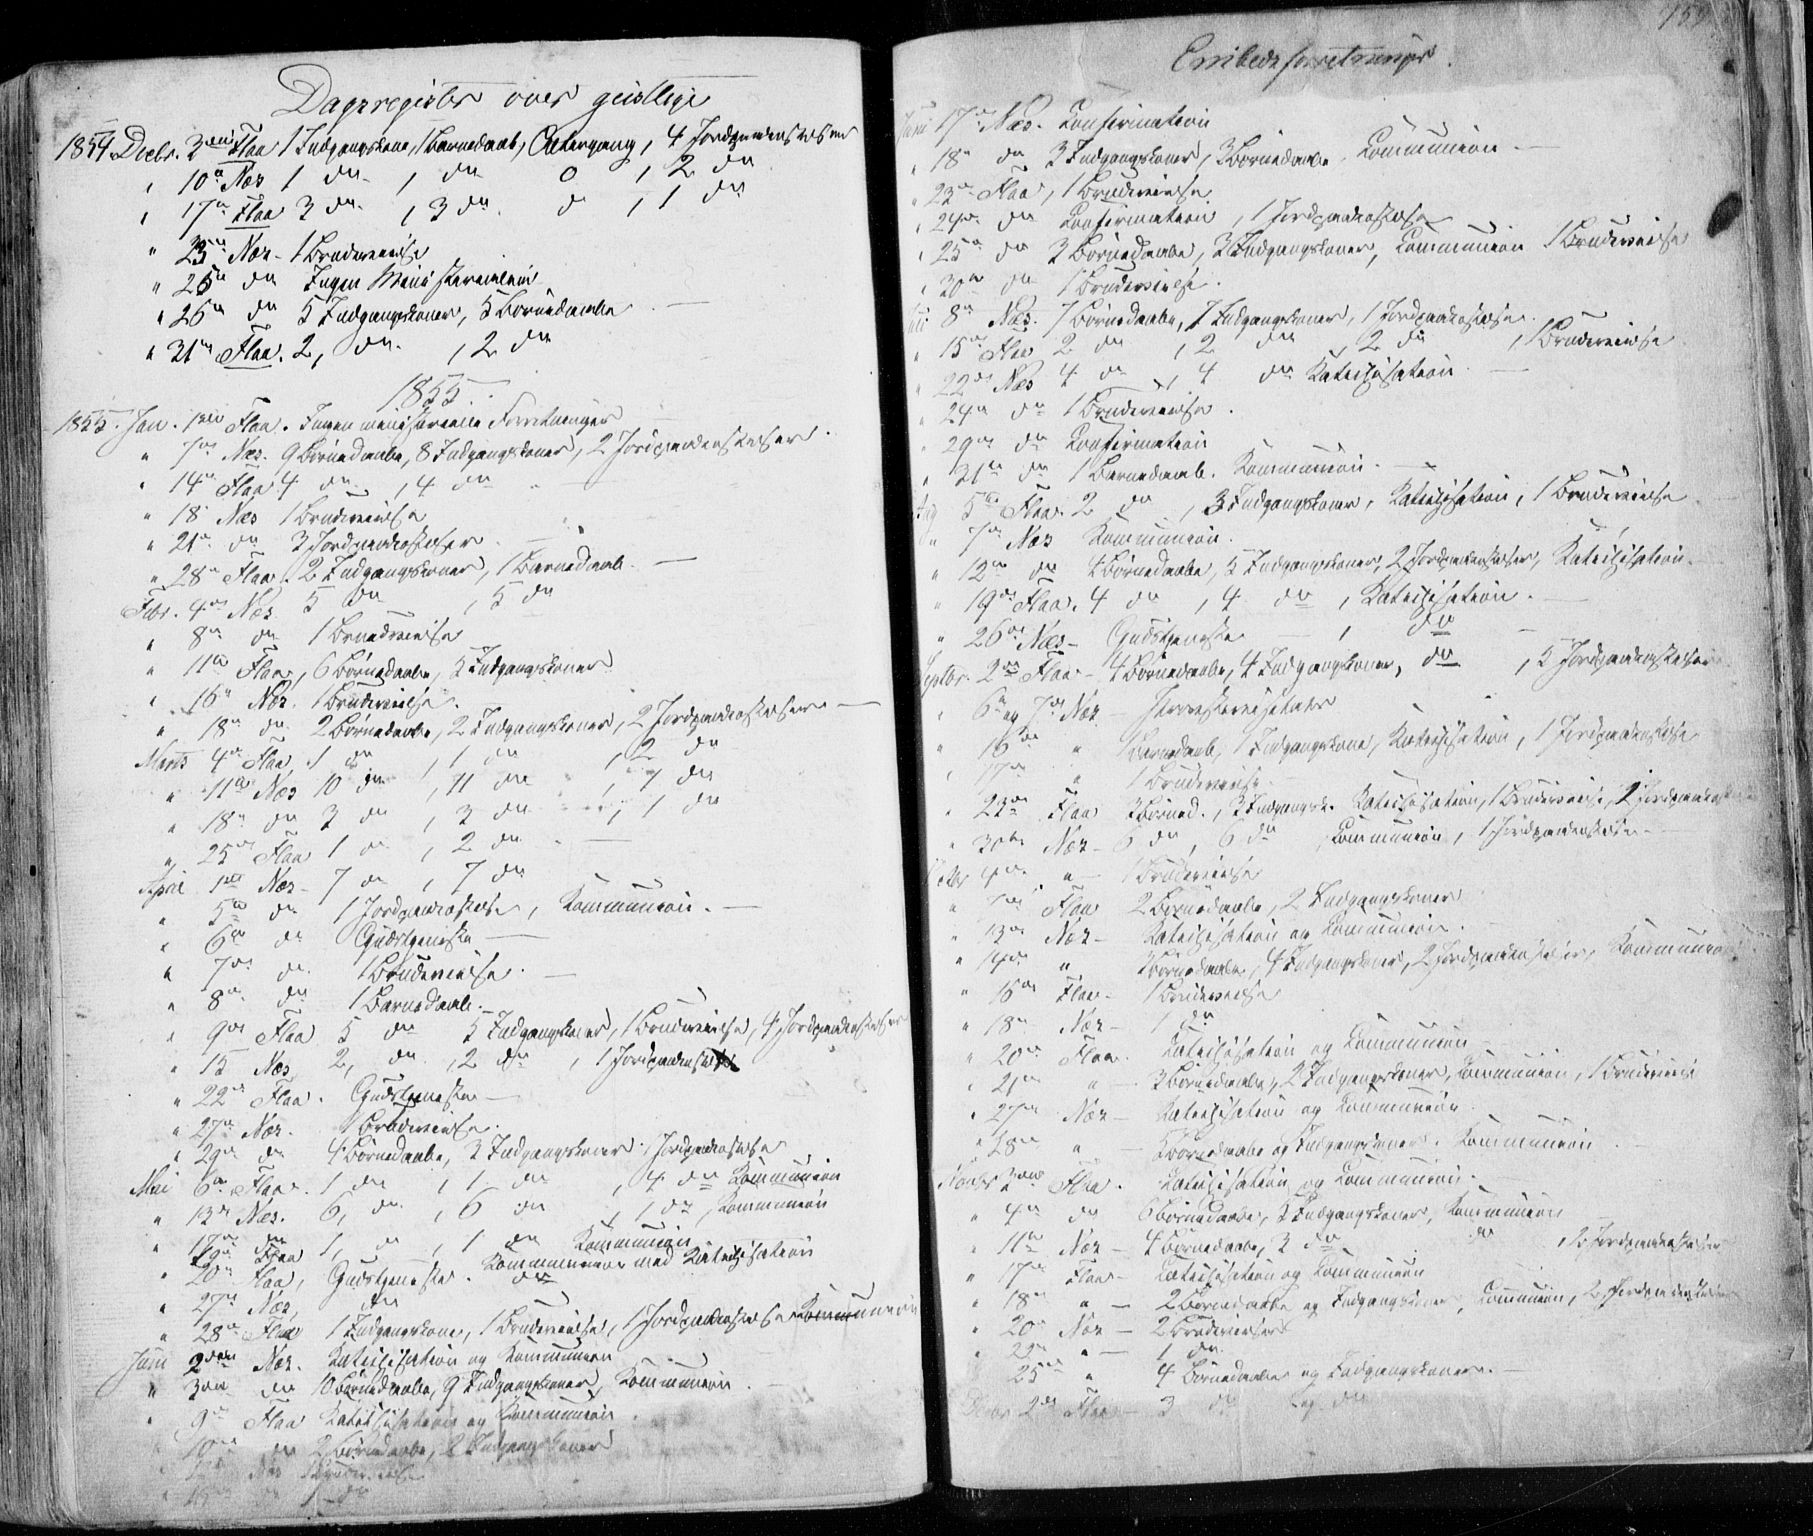 Dagsregister over geistlige
1854. Decbr. 3die Flaa 1 Indgangskone, 1 Barnedaab, Altergang, 4 Jordpaakastelser
" 10de Næs 1 do 1 do 0 , 2 do
" 17de Flaa 3 do , 3 do o , 1 do
" 23de Næs - 1 Brudevielse
" 25de do Ingen Ministerialia
" 26de do 5 Indgangskoner, 5 Børnedaabe
" 31te Flaa. 2, do , 2 do
1855.
1855. Jan. 1ste Flaa. Ingen ministerielle Forretninger
" 7de Næs. 9 Børnedaabe, 8 Indgangskoner, 2 Jordpaakastelser.
" 14de Flaa 4 do , 4 do
" 18 Næs 1 Brudevielse
" 21de do 3 Jordpaakastelser
" 28de Flaa. 2 Indgangskoner, 1 Barnedaab.
Febr. 4de Næs 5 do , 5 do
" 8de do 1 Brudevielse
" 11te Flaa, 6 Børnedaabe, 5 Indgangskoner
" 16de Næs. 1 Brudevielse.
" 18de do 2 Børnedaabe, 2 Indgangskoner, 2 Jordpaakastelser
Marts 4de Flaa 1 do , 1 do , 2 do
" 11te Næs 10 do , 11 do , 7 do
" 18de do 3 do , 3 do , 1 do
" 25de Flaa 1 do , 2 do
April 1ste Næs - 7 do , 7 do
" 5te do 1 Jordpaakastelse, Kommunion.
" 6te do Gudstjeneste
" 7de do 1 Brudevielse.
" 8de do 1 Barnedaab.
" 9de Flaa 5 do 5 Indgangskoner, 1 Brudevielse, 4 Jordpaakastelser
" 15 Næs 2, do , 2 do , 1 Jordpaakastelse
" 22de Flaa. Gudstjeneste
" 27de Næs. 1 Brudevielse.
" 29de do 4 Børnedaabe, 3 Indgangskoner 1 Jordpaakastelse
Mai 6te Flaa. 1 do , 1 do , 4 do Kommunion
" 13de Næs. 6, do , 6 do , 1 do, Kommunion
" 17de do 1, do , 1 do Kommunion
" 19de Flaa Kommunion med Katechisation
" 20de Flaa, Gudstjeneste. do
" 27de Næs, do
" 28de Flaa 1 Indgangskone, 1 Brudevielse, 1 Jordpaakastelse Kommunion
Juni 2den Næs. Katechisation og Kommunion
" 3die do 10 Børnedaabe, 9 Indgangskoner, Kommunion
" 9de Flaa Katechisation og Kommunion.
" 10de do 2 Børnedaabe, 2 Indgangskoner
Næs 1 Brudevielse
do 1 do
Embedsforretninger.
Juni 17de Næs. Konfirmation
" 18de do 3 Indgangskoner, 3 Børnedaabe, Kommunion
" 23de Flaa, 1 Brudevielse
" 24de do Konfirmation, 1 Jordpaakastelse
" 25de do 3 Børnedaabe, 3 Indgangskoner, Kommunion 1 Brudevielse
" 30te do 1 Brudevielse.
Juli 8de Næs. 7 Børnedaabe, 7 Indgangskoner, 1 Jordpaakastelse.
" 15de Flaa 2 do , 2 do , 2 do , 1 Brudevielse
" 22de Næs 4 do , 4 do Katechisation
" 24de do 1 Brudevielse.
" 29de do Konfirmation
" 31te do 1 Barnedaab. Kommunion.
Aug 5te Flaa 2 do , 3 Indgangskoner, Katechisation, 1 Brudevielse
" 7de Næs Kommunion.
" 12te do 4 Børnedaabe, 5 Indgangskoner, 2 Jordpaakastelser, Katechisation.
" 19de Flaa. 4 do , 4 do , Katechisation.
" 26de Næs - Gudstjeneste , do
Septbr. 2den Flaa - 4 Børnedaabe, 4 Indgangskoner, do , 5 Jordpaakastelser
" 6te og 7de Næs -
" 16de " 1 Barnedaab, 1 Indgangskone, Katechisation, 1 Jordpaakastelse
" 17de " 1 Brudevielse
" 23de Flaa 3 Børned., 3 Indgangsk. Katechisation, 1 Brudevielse, 2 Jordpaakastelser
" 30te Næs - 6 do , 6 do , Kommunion, 1 Jordpaakastelse
Octbr 4de " - 1 Brudevielse
" 7de Flaa 2 Børnedaabe, 2 Indgangskoner
" 13de Næs - Katechisation og Kommunion.
" 14de " 3 Børnedaabe, 4 Indgangskoner, 2 Jordpaakastelser, Kommunion
" 16de Flaa - 1 Brudevielse
" 18de Næs - 1 do
" 20de Flaa. Katechisation og Kommunion
" 21de " - 3 Børnedaabe, 2 Indgangskoner, Kommunion, 1 Brudevielse
" 27de Næs - Katechisation og Kommunion.
" 28de " - 5 Børnedaabe og Indgangskoner. Kommunion
Novbr 3die Flaa. Katechisation og Kommunion.
" 4de do 6 Børnedaabe, 3 Indgangskoner, Kommunion
" 11te Næs - 4 Børnedaabe, 3 do do , 2 Jordpaakastelser
" 17de Flaa - Katechisation og Kommunion
" 18de " - 2 Børnedaabe og Indgangskoner, Kommunion, 2 Jordpaakastelser
" 20de Næs - 2 Brudevielser
" 22de " - 1 do
25de " 4 Børnedaabe og Indgangskoner.
2den Flaa - 3 do og do